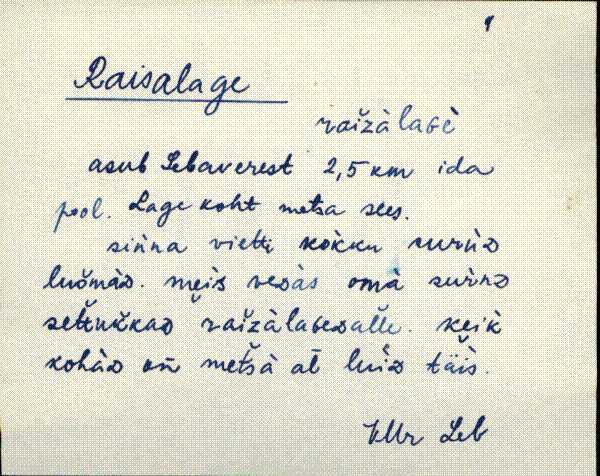 9
Raisalage
raižàlaGè
asub Lebaverest 2,5 km ida
pool. Lage koht metsa sees.
sińna vietti kokku surnD
luomaD. meis veDàs omà suřnD
settukkaD raižàlaGeDalle. keik
kohàD on metsà al luiD täis.
VMr Leb